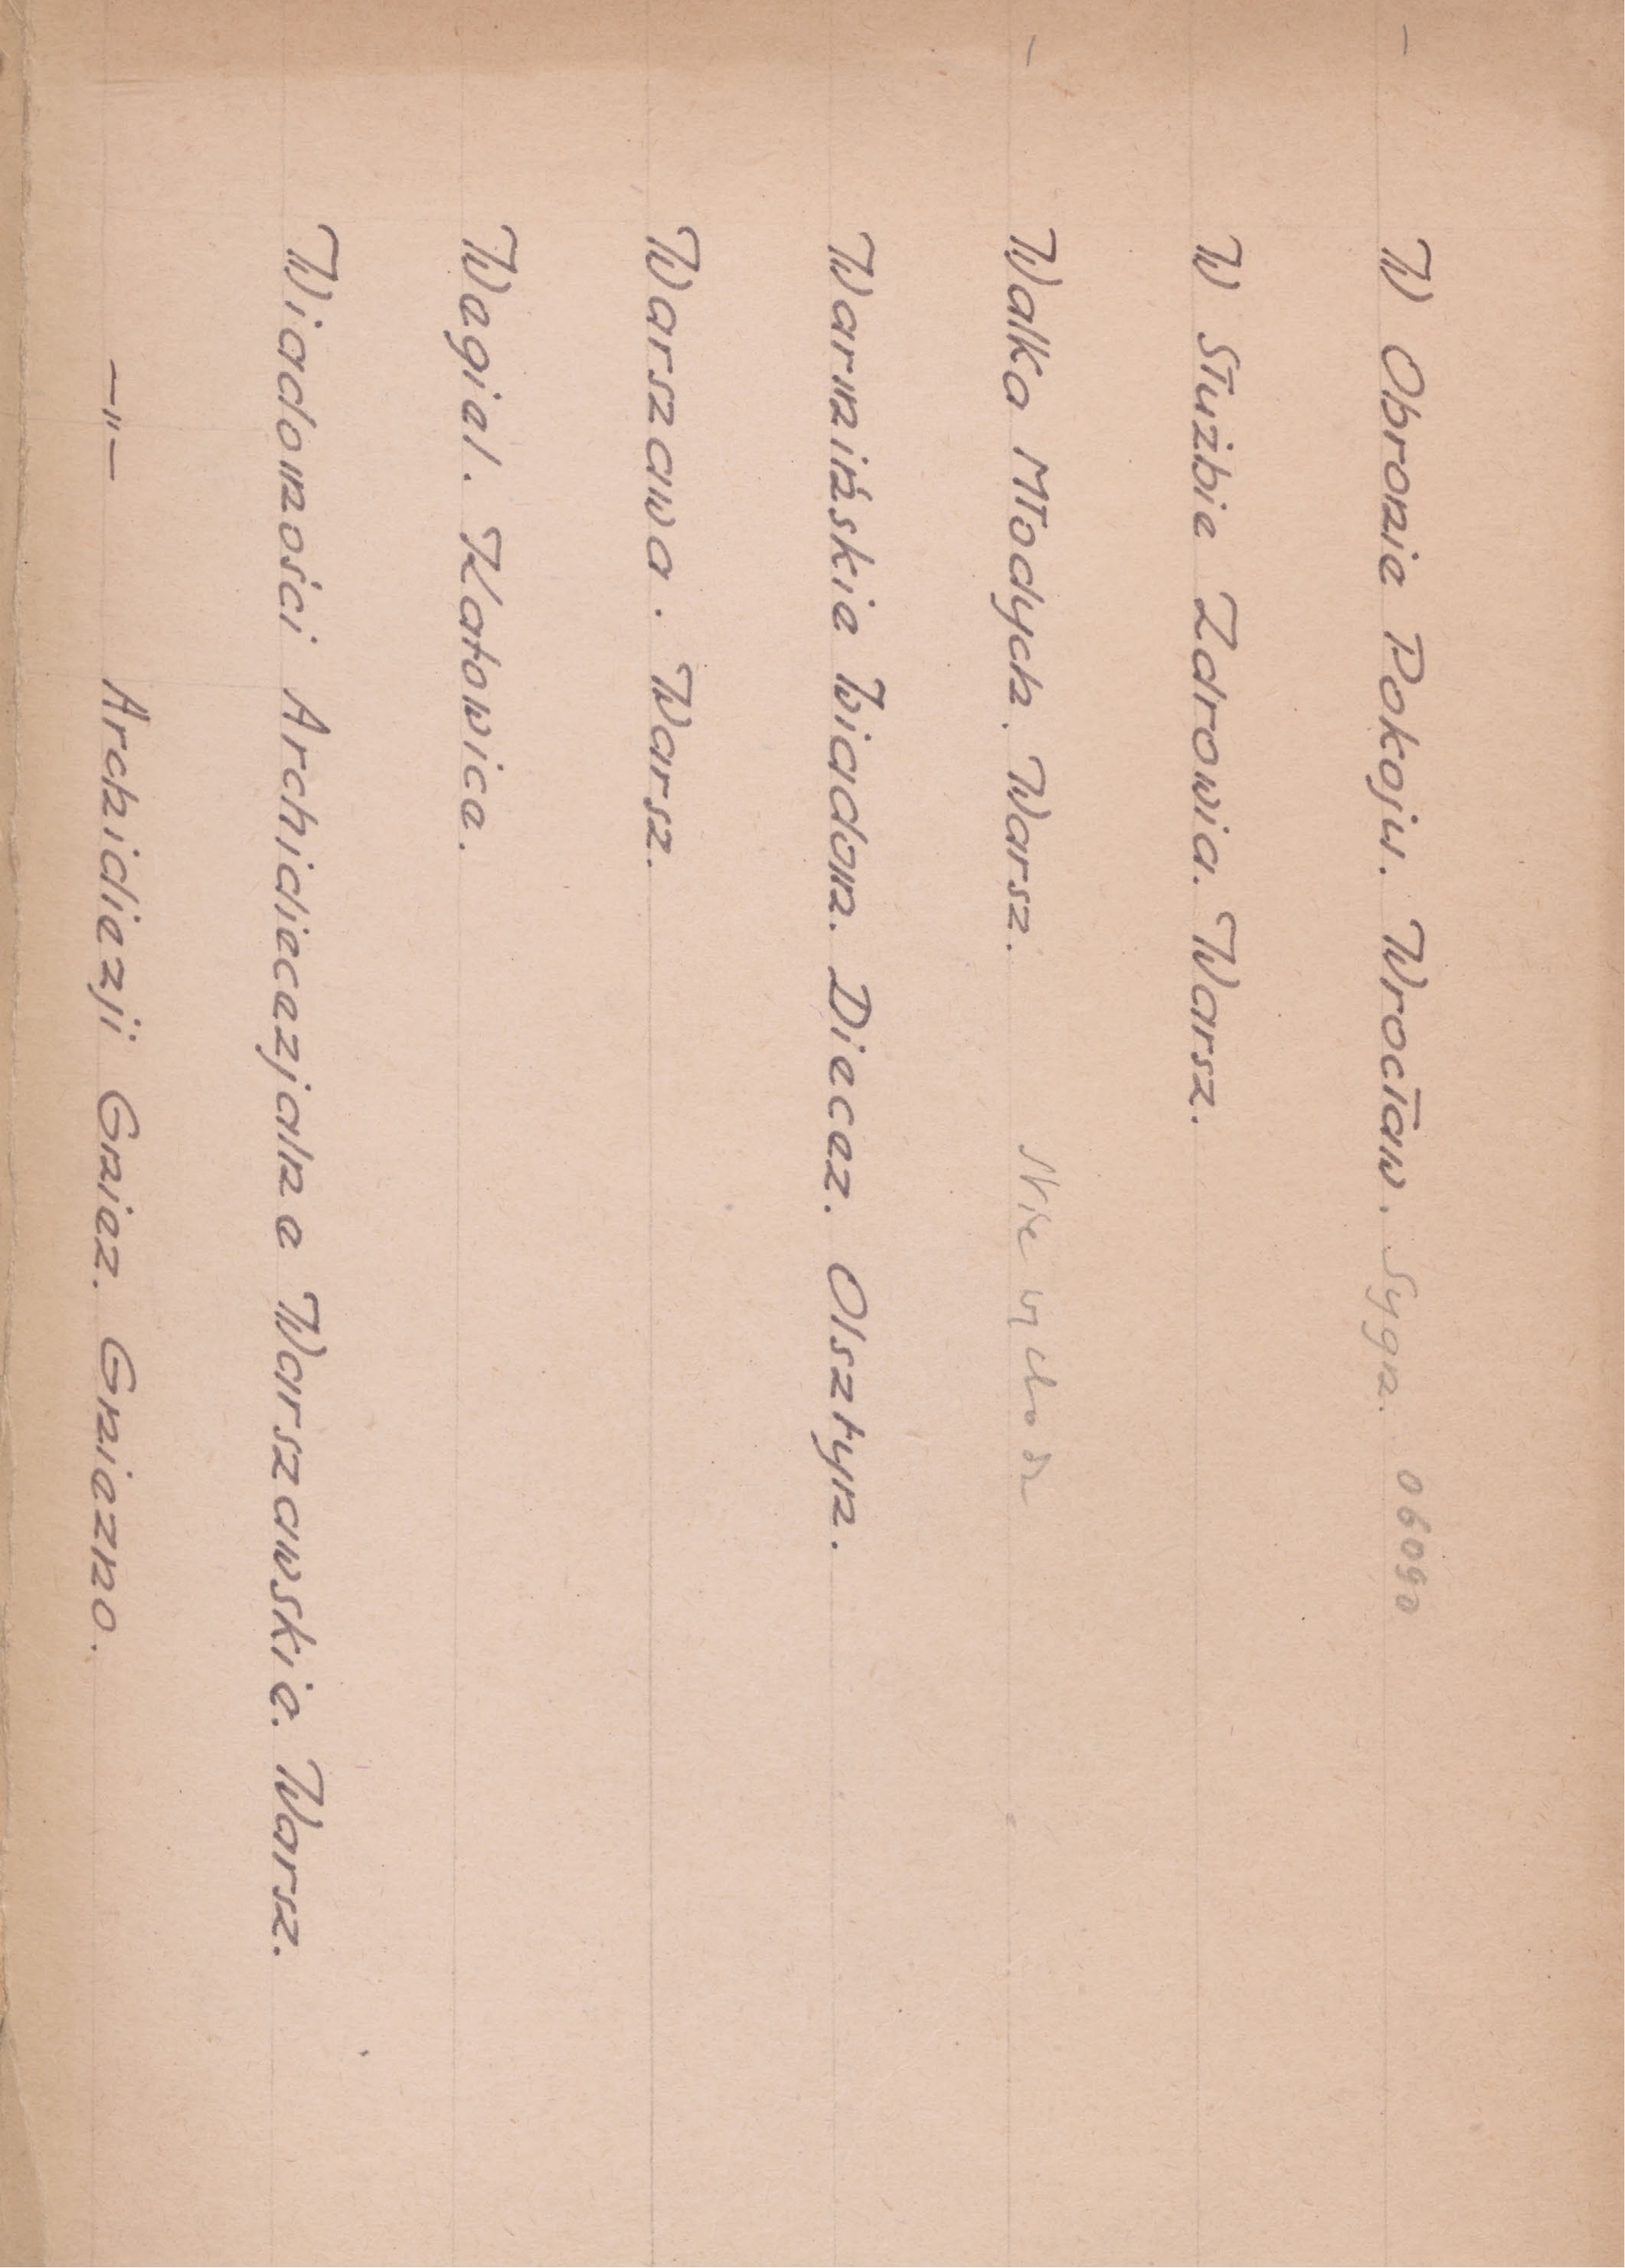 – W Obronie Pokoju. Wrocław. Sygn. 06090
W Służbie Zdrowia. Warsz.
– Walka Młodych. Warsz. Nie wchodzi
Warmińskie Wiadom. Diecez. Olsztyn.
Warszawa. Warsz.
Węgiel. Katowice.
Wiadomości Archidiecezjalne Warszawskie. Warsz.
–"– Archidiezji Gniez. Gniezno.